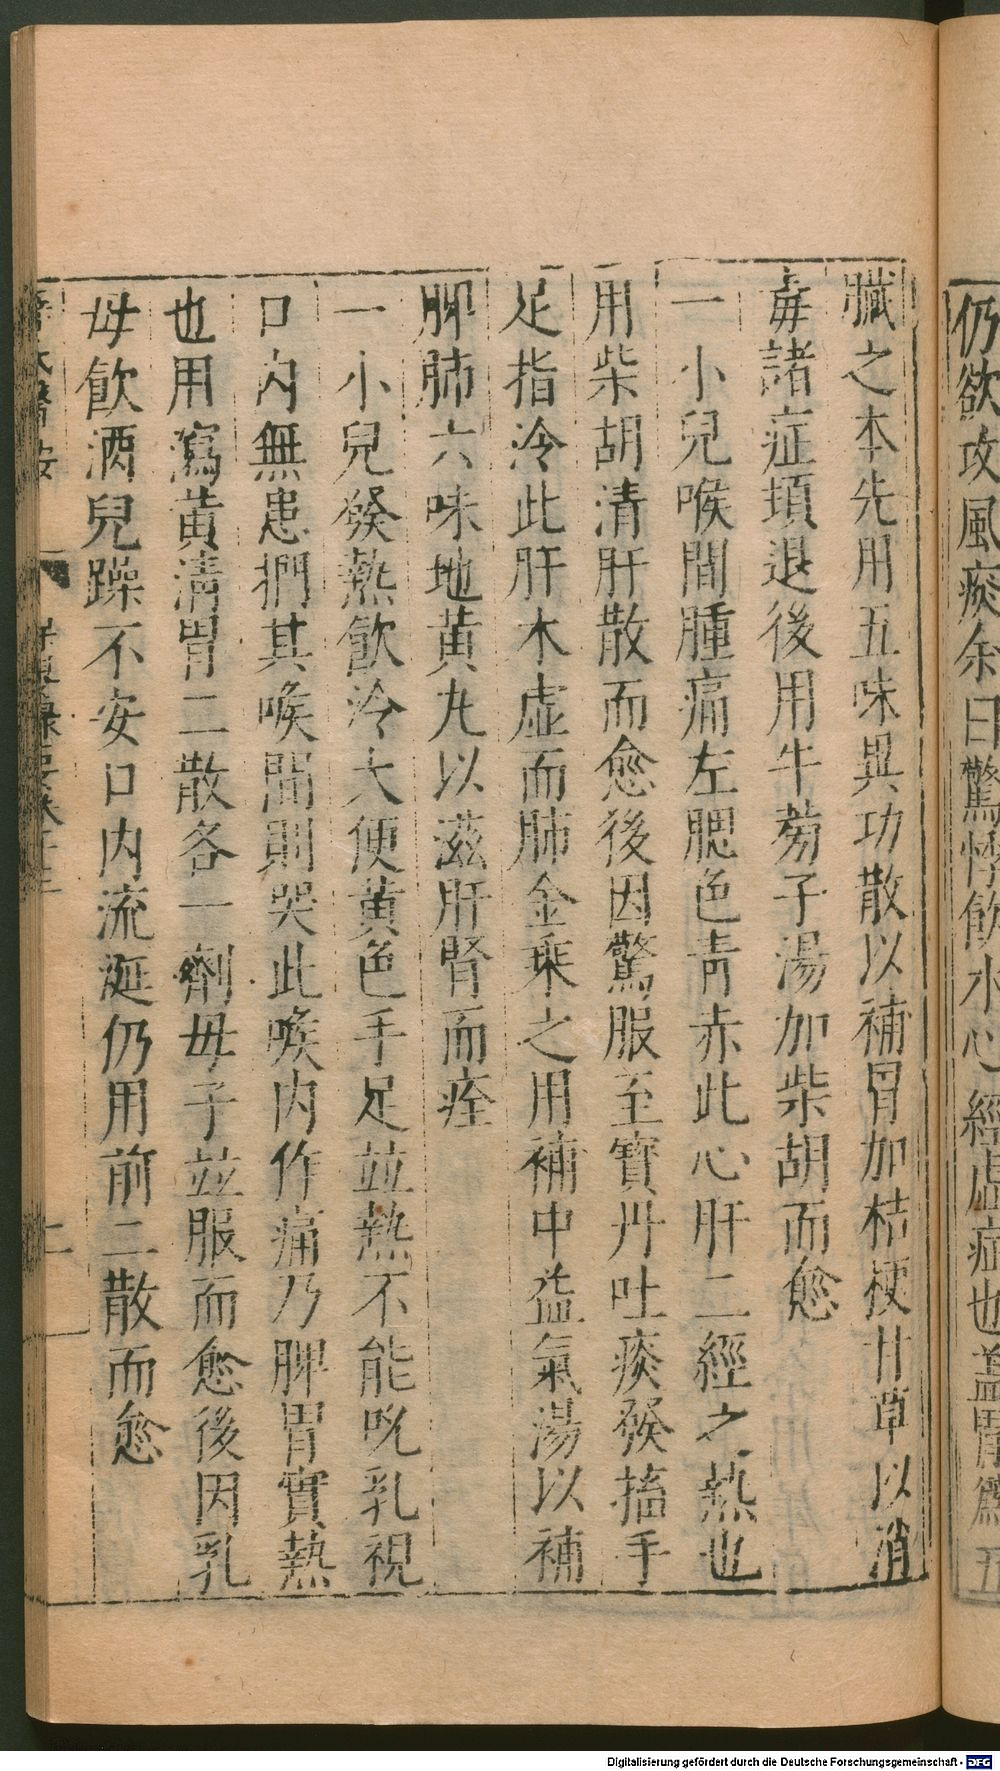 仍欲攻風痰余曰驚悸飲水心經虛症也蓋胃為五
臟之本先用五味異功散以補胃加桔梗甘草以消
毒諸症頓退後用牛蒡子湯加柴胡而愈
一小兒喉間腫痛左腮色青赤此心肝二經之熱也
用柴胡清肝散而愈後因驚服至寶丹吐痰發搐手
足指冷此肝木虛而肺金乗之用補中益氣湯以補
脾肺六味地黄丸以滋肝腎而痊
一小兒發熱飲冷大便黄色手足並熱不能吮乳視
口内無患捫其喉間則哭此喉内作痛乃脾胃實熱
也用瀉黄清胃二散各一劑母子並服而愈後因乳
母飲酒兒躁不安口内流涎仍用前二散而愈
Digitalisierung gefördert durch die Deutsche Forschungsgemeinschaft - DFG